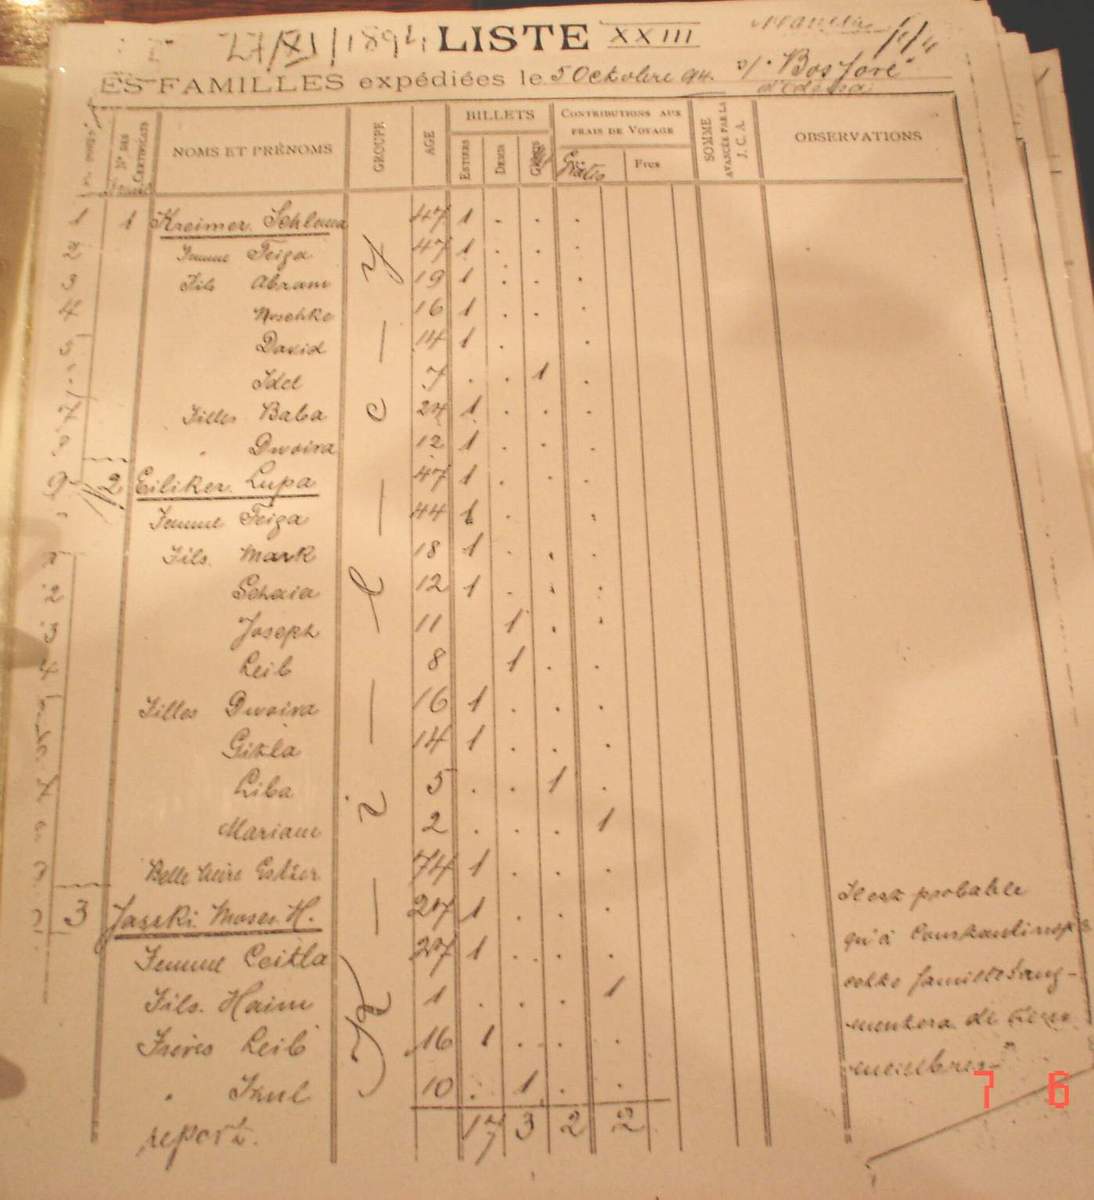 27/XI/1894 LISTE XXIII
ES FAMILLES expédiées le 5 Octobre 94. s/. "Bosfore"
d'Odessa
Nº DES CERTIFICATS NOMS ET PRÉNOMS GROUPE AGE BILLETS ENTIERS DEMIS CONTRIBUTIONS AUX FRAIS DE VOYAGE Gratis Frcs SOMME AVANCÉE PAR LA J. C. A. OBSERVATIONS
1 1 Kreimer Schloma 47 1 . . .
2 Femme Feiga 47 1 . . .
3 Fils Abram 19 1 . . .
4 Moschke 16 1 . . .
5 David 14 1 . . .
Idel 7 . . 1 .
7 Filles Baba 24 1 . . .
8 " Dwoira 12 1 . . .
9 2 Eiliker Lupa 47 1 . .
Femme Feiga 44 1 . .
Fils. Mark 18 1 . . .
2 Schaia 12 1 . . .
3 Joseph 11 1 . .
4 Leib 8 1 . .
Filles Dwoira 16 1 . . .
Gitla 14 1 . . .
7 Liba 5 . . 1 .
Mariam 2 . . . 1
Belle mère Esther 74 1 . . .
3 Jaszki Moses H. 27 1 . . . Il est probable
Femme Ceitla 27 1 . . . qu'à Constantinople
Fils. Haim 1 . . . 1 cette famille s'aug-
Frères Leib 16 1 . . . mentera de
" Srul 10 . 1 . . membres
report. 17 3 2 2
7 6